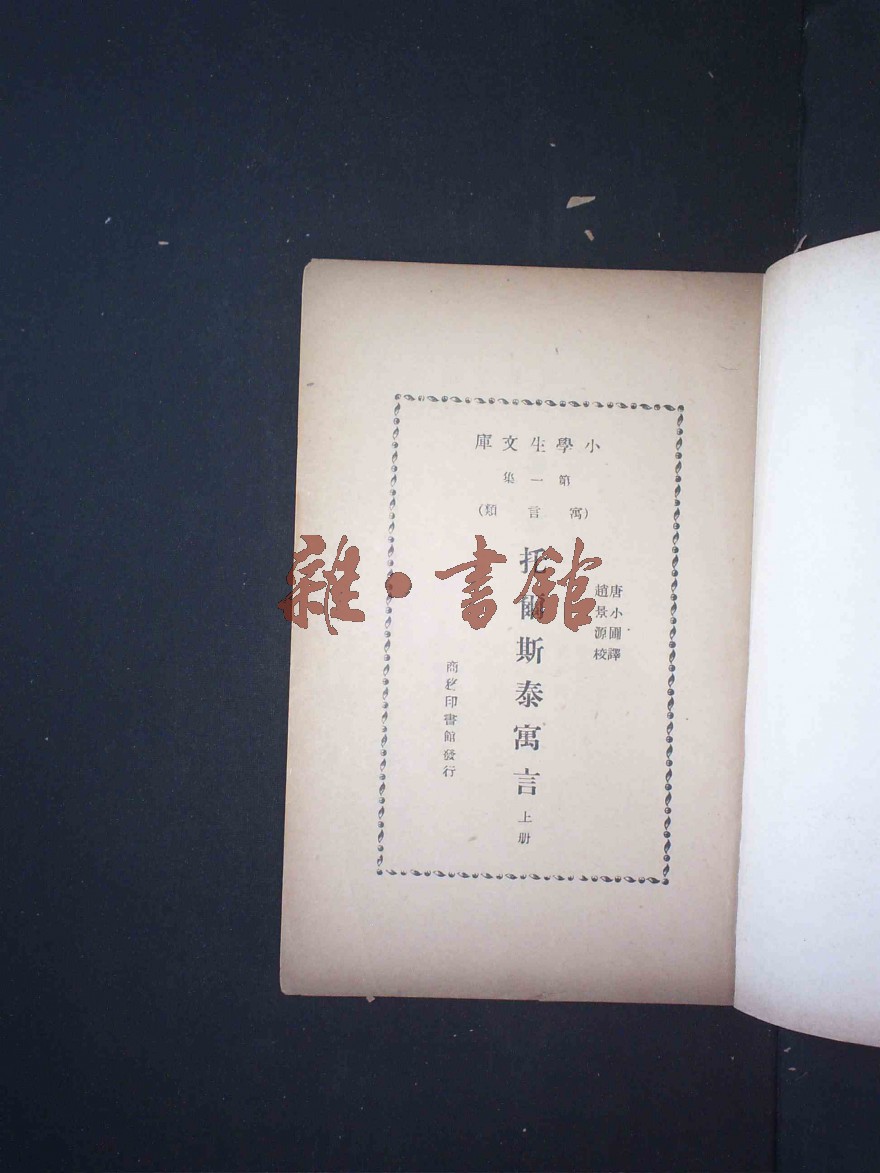 小學生文庫
第一集
(寓言類)
唐小圃譯
趙景源校
托爾斯泰寓言 上册
商務印書館發行
雜·書館